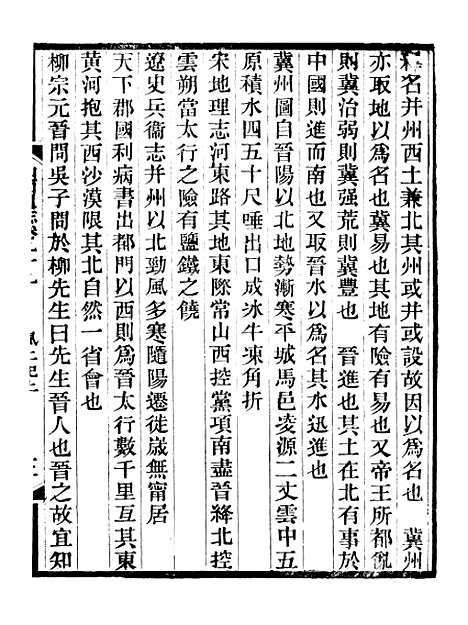 釋名并州西土兼北其州或并或設故因以爲名也　冀州
亦取地以爲名也冀易也其地有險有易也又帝王所都亂
則冀治弱則冀强荒則冀豐也　晉進也其土在北有事於
中國則進而南也又取晉水以爲名其水迅進也
冀州圖自晉陽以北地勢漸寒平城馬邑凌源二丈雲中五
原積水四五十尺唾出口成冰牛凍角折
宋地理志河東路其地東際常山西控黨項南盡晉絳北控
雲朔當太行之險有鹽鐵之饒
遼史兵衞志并州以北勁風多寒隨陽遷徙歲無甯居
天下郡國利病書出都門以西則爲晉太行數千里亙其東
黃河抱其西沙漠限其北自然一省會也
柳宗元晉問吳子問於柳先生曰先生晉人也晉之故宜知
風土記上